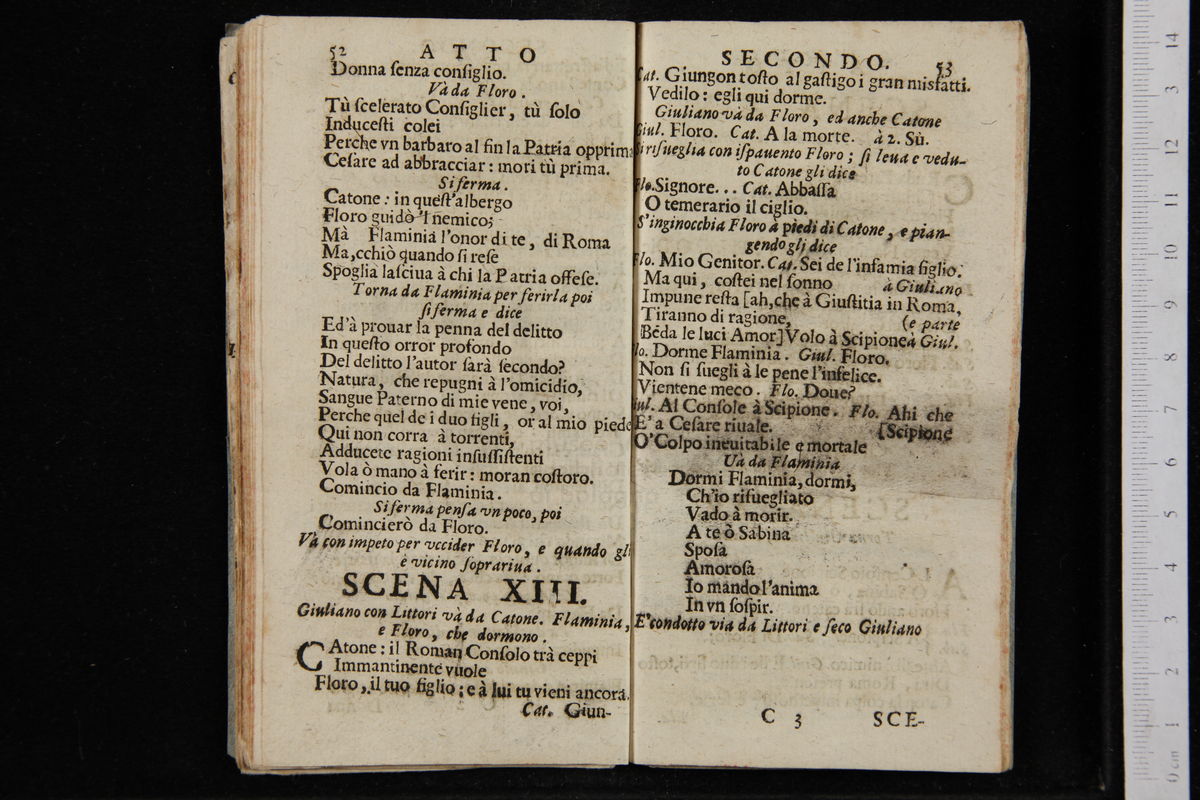 52 ATTO
Donna ſenza conſiglio.
Và da Floro.
Tù ſcelerato Conſiglier, tù ſolo
Induceſti colei
Perche vn barbaro al fin la Patria opprima
Ceſare ad abbracciar: mori tù prima.
Si ferma.
Catone: in queſt'albergo
Floro guidò 'l nemico;
Mà Flaminia l'onor di te, di Roma
Ma,cchiò quando ſi reſe
Spoglia laſciua à chi la Patria offeſe.
Torna da Flaminia per ferirla poi
ſi ferma e dice
Ed'à prouar la penna del delitto
In queſto orror profondo
Del delitto l'autor ſarà ſecondo?
Natura, che repugni à l'omicidio,
Sangue Paterno di mie vene, voi,
Perche quel de i duo figli, or al mio piede
Qui non corra à torrenti,
Adducete ragioni inſuſſiſtenti
Vola ò mano à ferir: moran coſtoro.
Comincio da Flaminia.
Si ferma penſa vn poco, poi
Comincierò da Floro.
Và con impeto per vccider Floro, e quando gli
è vicino ſoprariua.
SCENA XIII.
Giuliano con Littori và da Catone. Flaminia,
e Floro, che dormono.
CAtone: il Roman Conſolo trà ceppi
Immantinente vuole
Floro, il tuo figlio; e à lui tu vieni ancora.
Cat. Giun-
SECONDO. 53
Cat. Giungon toſto al gaſtigo i gran misfatti.
Vedilo: egli qui dorme.
Giuliano và da Floro, ed anche Catone
Giul. Floro. Cat. A la morte. à 2. Sù.
Si riſueglia con iſpauento Floro; ſi leua e vedu-
to Catone gli dice
Flo. Signore... Cat. Abbaſſa
O temerario il ciglio.
S'inginocchia Floro à piedi di Catone, e pian-
gendo gli dice
Flo. Mio Genitor. Cat. Sei de l'infamia figlio.
Ma qui, coſtei nel ſonno à Giuliano
Impune reſta [ah, che à Giuſtitia in Roma,
Tiranno di ragione, (e parte
Beda le luci Amor] Volo à Scipione à Giul.
Flo. Dorme Flaminia. Giul. Floro.
Non ſi ſuegli à le pene l'infelice.
Vientene meco. Flo. Doue?
Giul. Al Conſole à Scipione. Flo. Ahi che
E' a Ceſare riuale. [Scipione
O' Colpo ineuitabile e mortale
Uà da Flaminia
Dormi Flaminia, dormi,
Ch'io riſuegliato
Vado à morir.
A te ò Sabina
Spoſa
Amoroſa
Io mando l'anima
In vn ſoſpir.
E' condotto via da Littori e ſeco Giuliano
C 3 SCE-
0 cm 1 2 3 4 5 6 7 8 9 10 11 12 13 14